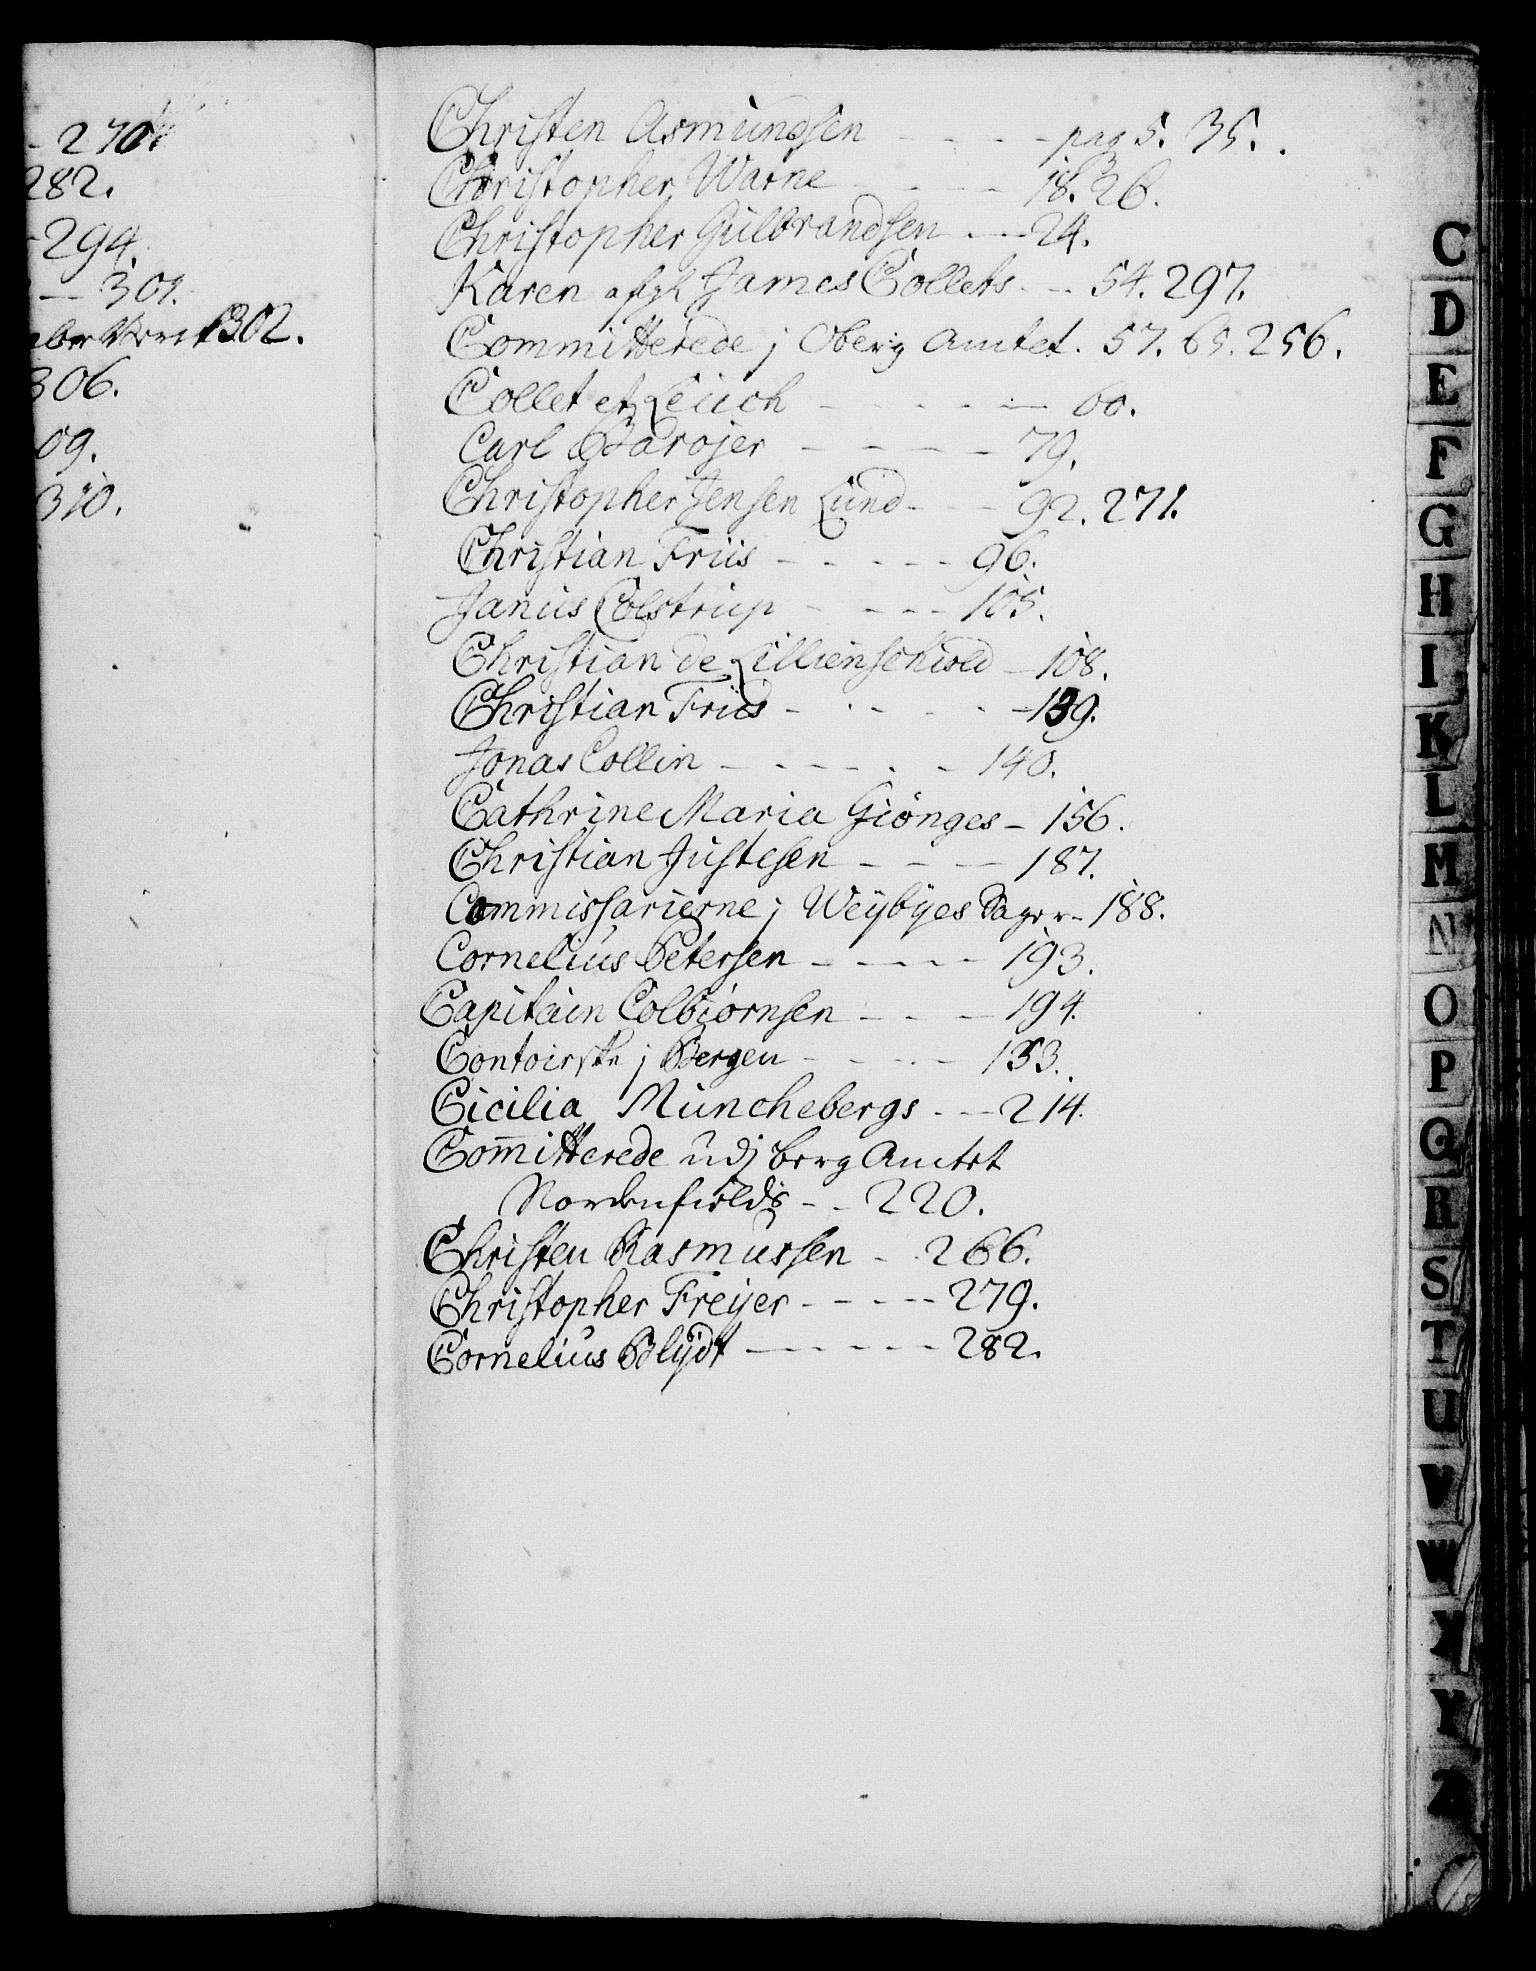 - 270
282.
- 294.
- 301.
1302.
306.
09.
310.
Christen Asmundsen - - - pag 5. 35.
Christopher Warne - - - 18. 26.
Christopher Gulbrandsen - - 24.
Karen afgl James Collets - - 54. 297.
Committerede j Oberg Amtet. 57. 65. 256.
Collet et Leuch - - - - - 60.
Carl Barojer - - - - 79.
Christopher Jensen Lund - - - 92. 271.
Christian Friis - - - - - 96.
Janus Colstrup - - - - 105.
Christian de Lillienschiold - 108.
Christian Friis - - - - - - 139.
Jonas Collin - - - - - - 140.
Cathrine Maria Giönges - 156.
Christian Justesen - - - 187.
Commissarierne j Weybyes Sager - 188.
Cornelius Petersen - - - - - 193.
Capitain Colbiørnsen - - - 194.
Contoirske j Bergen - - - - 153.
Cicilia Munchebergs - - - 214.
Com̅itterede udj berg Amtet
Nordenfields - - 220.
Christen Rasmussen - 266.
Christopher Freyer - - - - - 279.
Cornelius Blydt - - - - - - 282.
C
D
E
F
G
H
I
K
L
M
N
O
P
Q
R
S
T
U
V
W
X
Y
Z